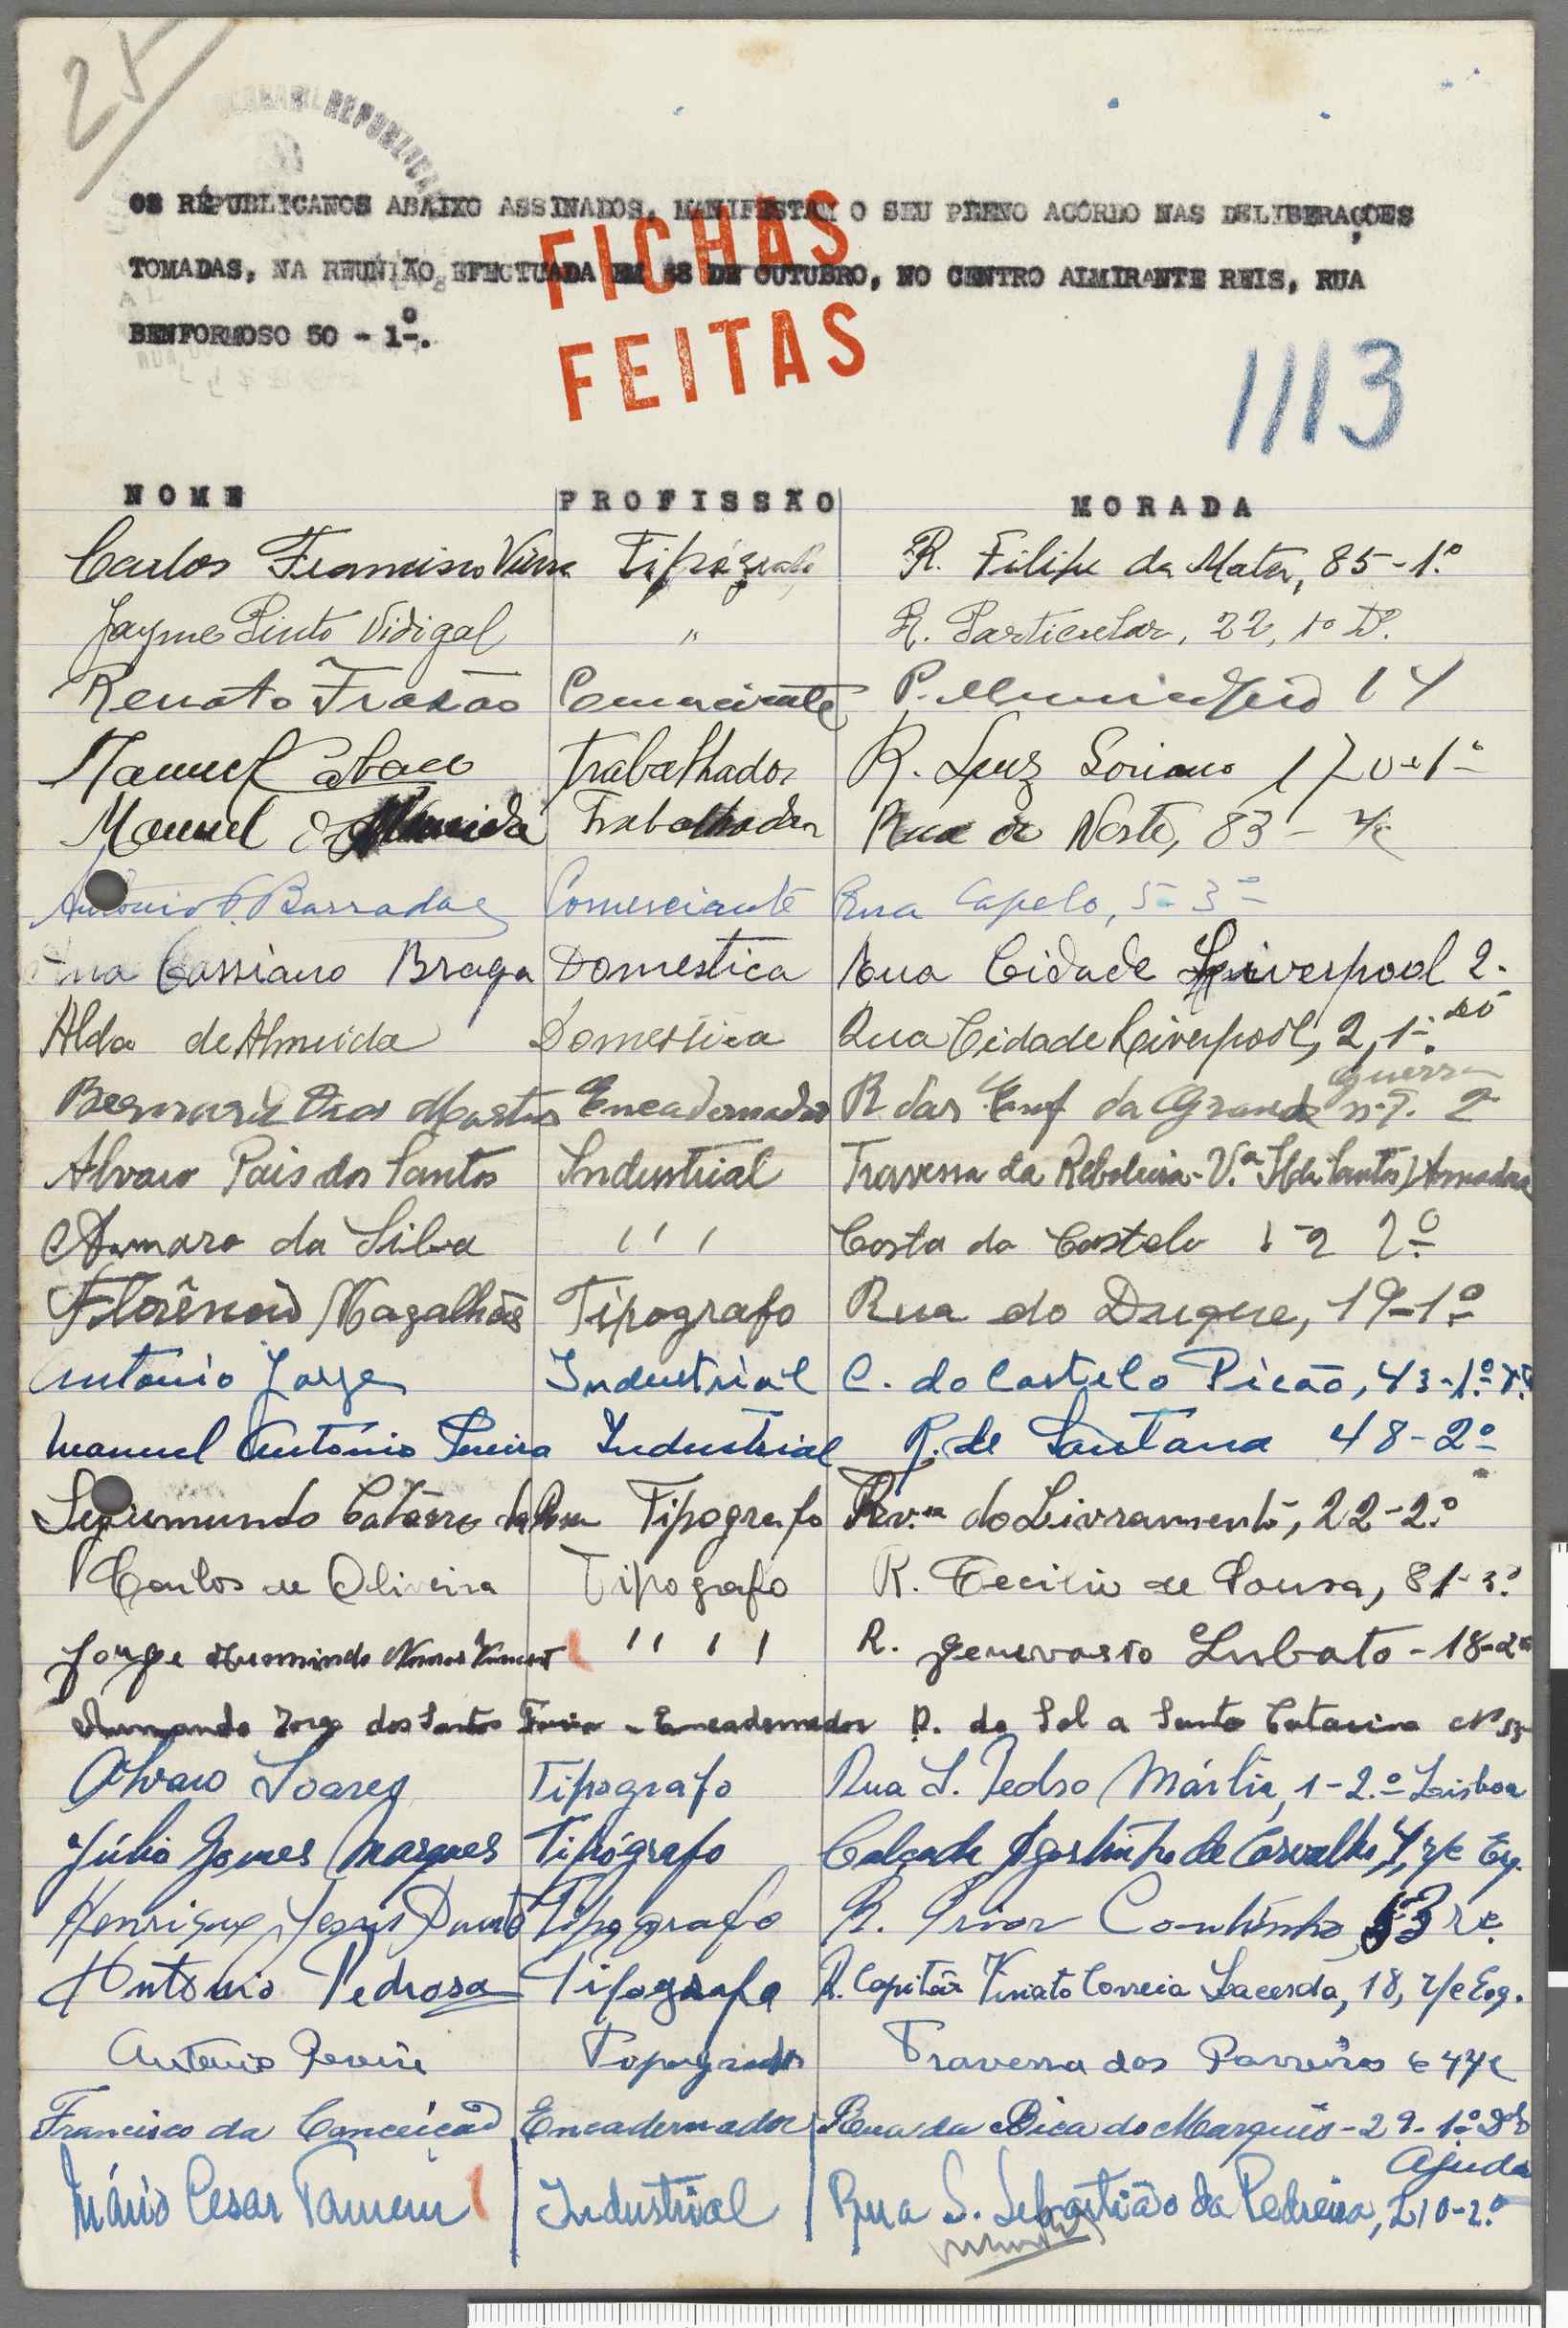 25
REPUBLICA
OS REPUBLICANOS ABAIXO ASSINADOS, MANIFESTAM O SEU PLENO ACÔRDO NAS DELIBERAÇOES
TOMADAS, NA REUNIÃO EFECTUADA EM DE OUTUBRO, NO CENTRO ALMIRANTE REIS, RUA
BENFORMOSO 50 - 1º.
FICHAS
FEITAS
1113
NOME PROFISSÃO MORADA
Carlos Francisco Tipógrafo R. Filipe da Mata, 85-1.º
Jayme Pinto Vidigal " R. Particular, 22, 1º Dº.
Renato Frazão Comerciante P. 14
Manuel trabalhador R. Luz Soriano
Manuel Almeida Trabalhador Rua do Norte, 83 - r/c
António Barradas Comerciante Rua Capelo, 5-3º
Cassiano Braga Domestica Rua Cidade Liverpool 2.
Alda de Almeida Domestica Rua Cidade Liverpool, 2, 1º.
Dias Martins Encadernador R. das da Grande Guerra nº. 2
Alvaro Pais dos Santos Industrial Travessa da Reboleira - V.ª Santos) Amadora
Amaro da Silva ' ' ' Costa do Castelo 2º
Florêncio Magalhães Tipografo Rua do Duque, 19-1º
António Jorge Industrial C. do Castelo Picão, 43-1.º
Manuel António Pereira Industrial R. de Santana 48-2º
Segismundo da Tipografo do Livramento, 22-2.º
Carlos de Oliveira Tipografo R. Cecilio de Sousa, 81-3.º
Jorge ' ' ' ' R. Lobato - 18-2º
Armando Jorge dos Santos - Encadernador R. do Sol a Santa Catarina Nº
Alvaro Soares Tipografo Rua S. Pedro Mártir, 1-2.º Lisboa
Júlio Gomes Marques Tipógrafo Calçada Agostinho de Carvalho, r/c Esq.
Henrique Jesus Duarte Tipografo R. Prior Coutinho, r/c.
Antonio Pedrosa Tipografo R. Capitão Viriato Correia Lacerda, 18, r/c Esq.
Antonio Pereira Travessa dos
Francisco da Conceição Encadernador Rua da Bica do Marquês - 29-1º Dtº
Ajuda
Mário Cesar Industrial Rua S. Sebastião da Pedreira, 210-2.º